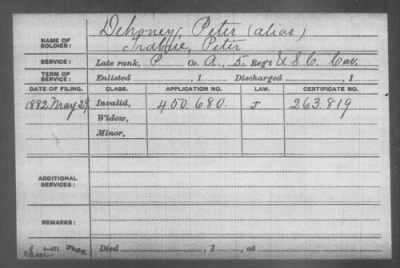 NAME OF SOLDIER: Dehoney, Peter (alias)
Trabue, Peter
SERVICE: Late rank, P Co. A, 5 Reg't U S C Cav.
TERM OF SERVICE: Enlisted , 1 Discharged , 1
DATE OF FILING. CLASS. APPLICATION NO. LAW. CERTIFICATE NO.
1882 May 29 Invalid, 450.680. J 263.819
Widow,
Minor,
ADDITIONAL SERVICES:
REMARKS:
Died , 1 , at